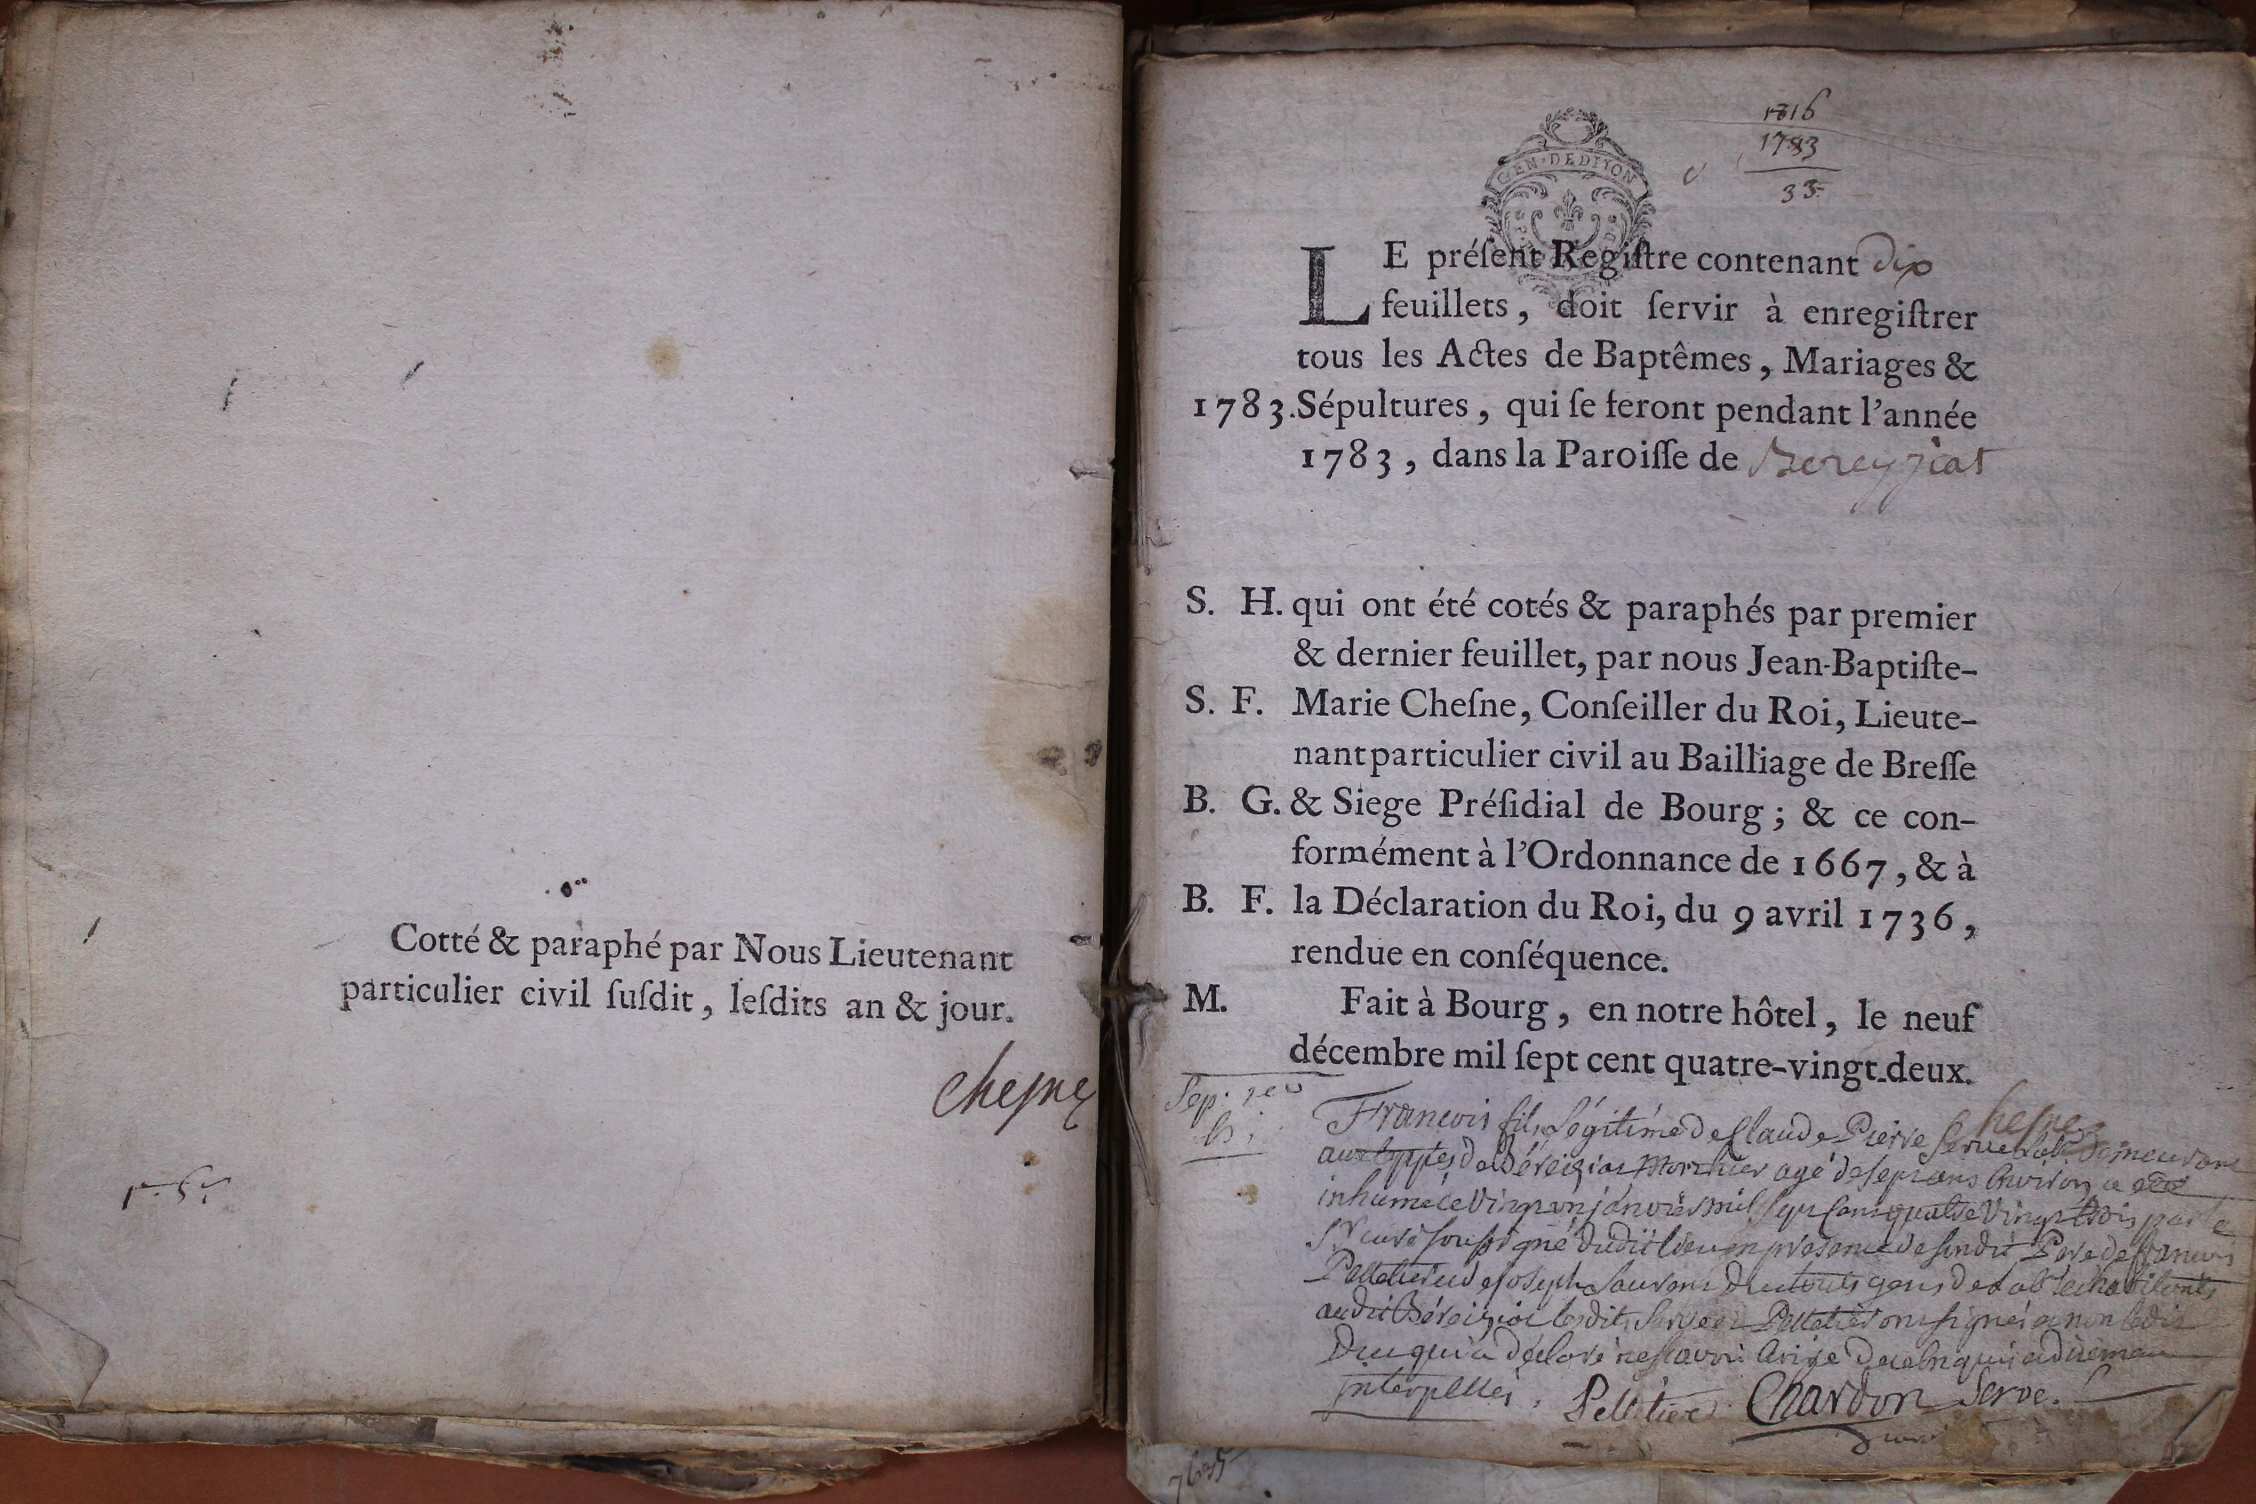 Cotté & paraphé par Nous Lieutenant
particulier civil ſuſdit, leſdits an & jour.
Cheſne
1816
1783
33
GEN·DEDIJON
LE préſent Regiſtre contenant dix
feuillets, doit ſervir à enregiſtrer
tous les Actes de Baptêmes, Mariages &
1783. Sépultures, qui ſe feront pendant l'année
1783, dans la Paroiſſe de Bereyziat
S. H. qui ont été cotés & paraphés par premier
& dernier feuillet, par nous Jean-Baptiſte-
S. F. Marie Cheſne, Conſeiller du Roi, Lieute-
nant particulier civil au Bailliage de Breſſe
B. G. & Siege Préſidial de Bourg; & ce con-
formément à l'Ordonnance de 1667, & à
B. F. la Déclaration du Roi, du 9 avril 1736,
rendue en conſéquence.
M. Fait à Bourg, en notre hôtel, le neuf
décembre mil ſept cent quatre-vingt-deux.
Cheſne
Sep.
François fils légitime de Claude Pierre Serve demeurant
de Béreiziat agé de sept ans environ a été
inhumé le vingt un janvier mil sept cent quatre vingt trois par le
Sr curé soussigné dudit lieu en presence dudit Pere de François
Pelletier et de Joseph habitants
audit Béreiziat lesdits Serve et Pelletier ont signés et non ledit
qui a déclaré ne savoir
interpellés. Pelletier Chardon Serve.
curé
7635